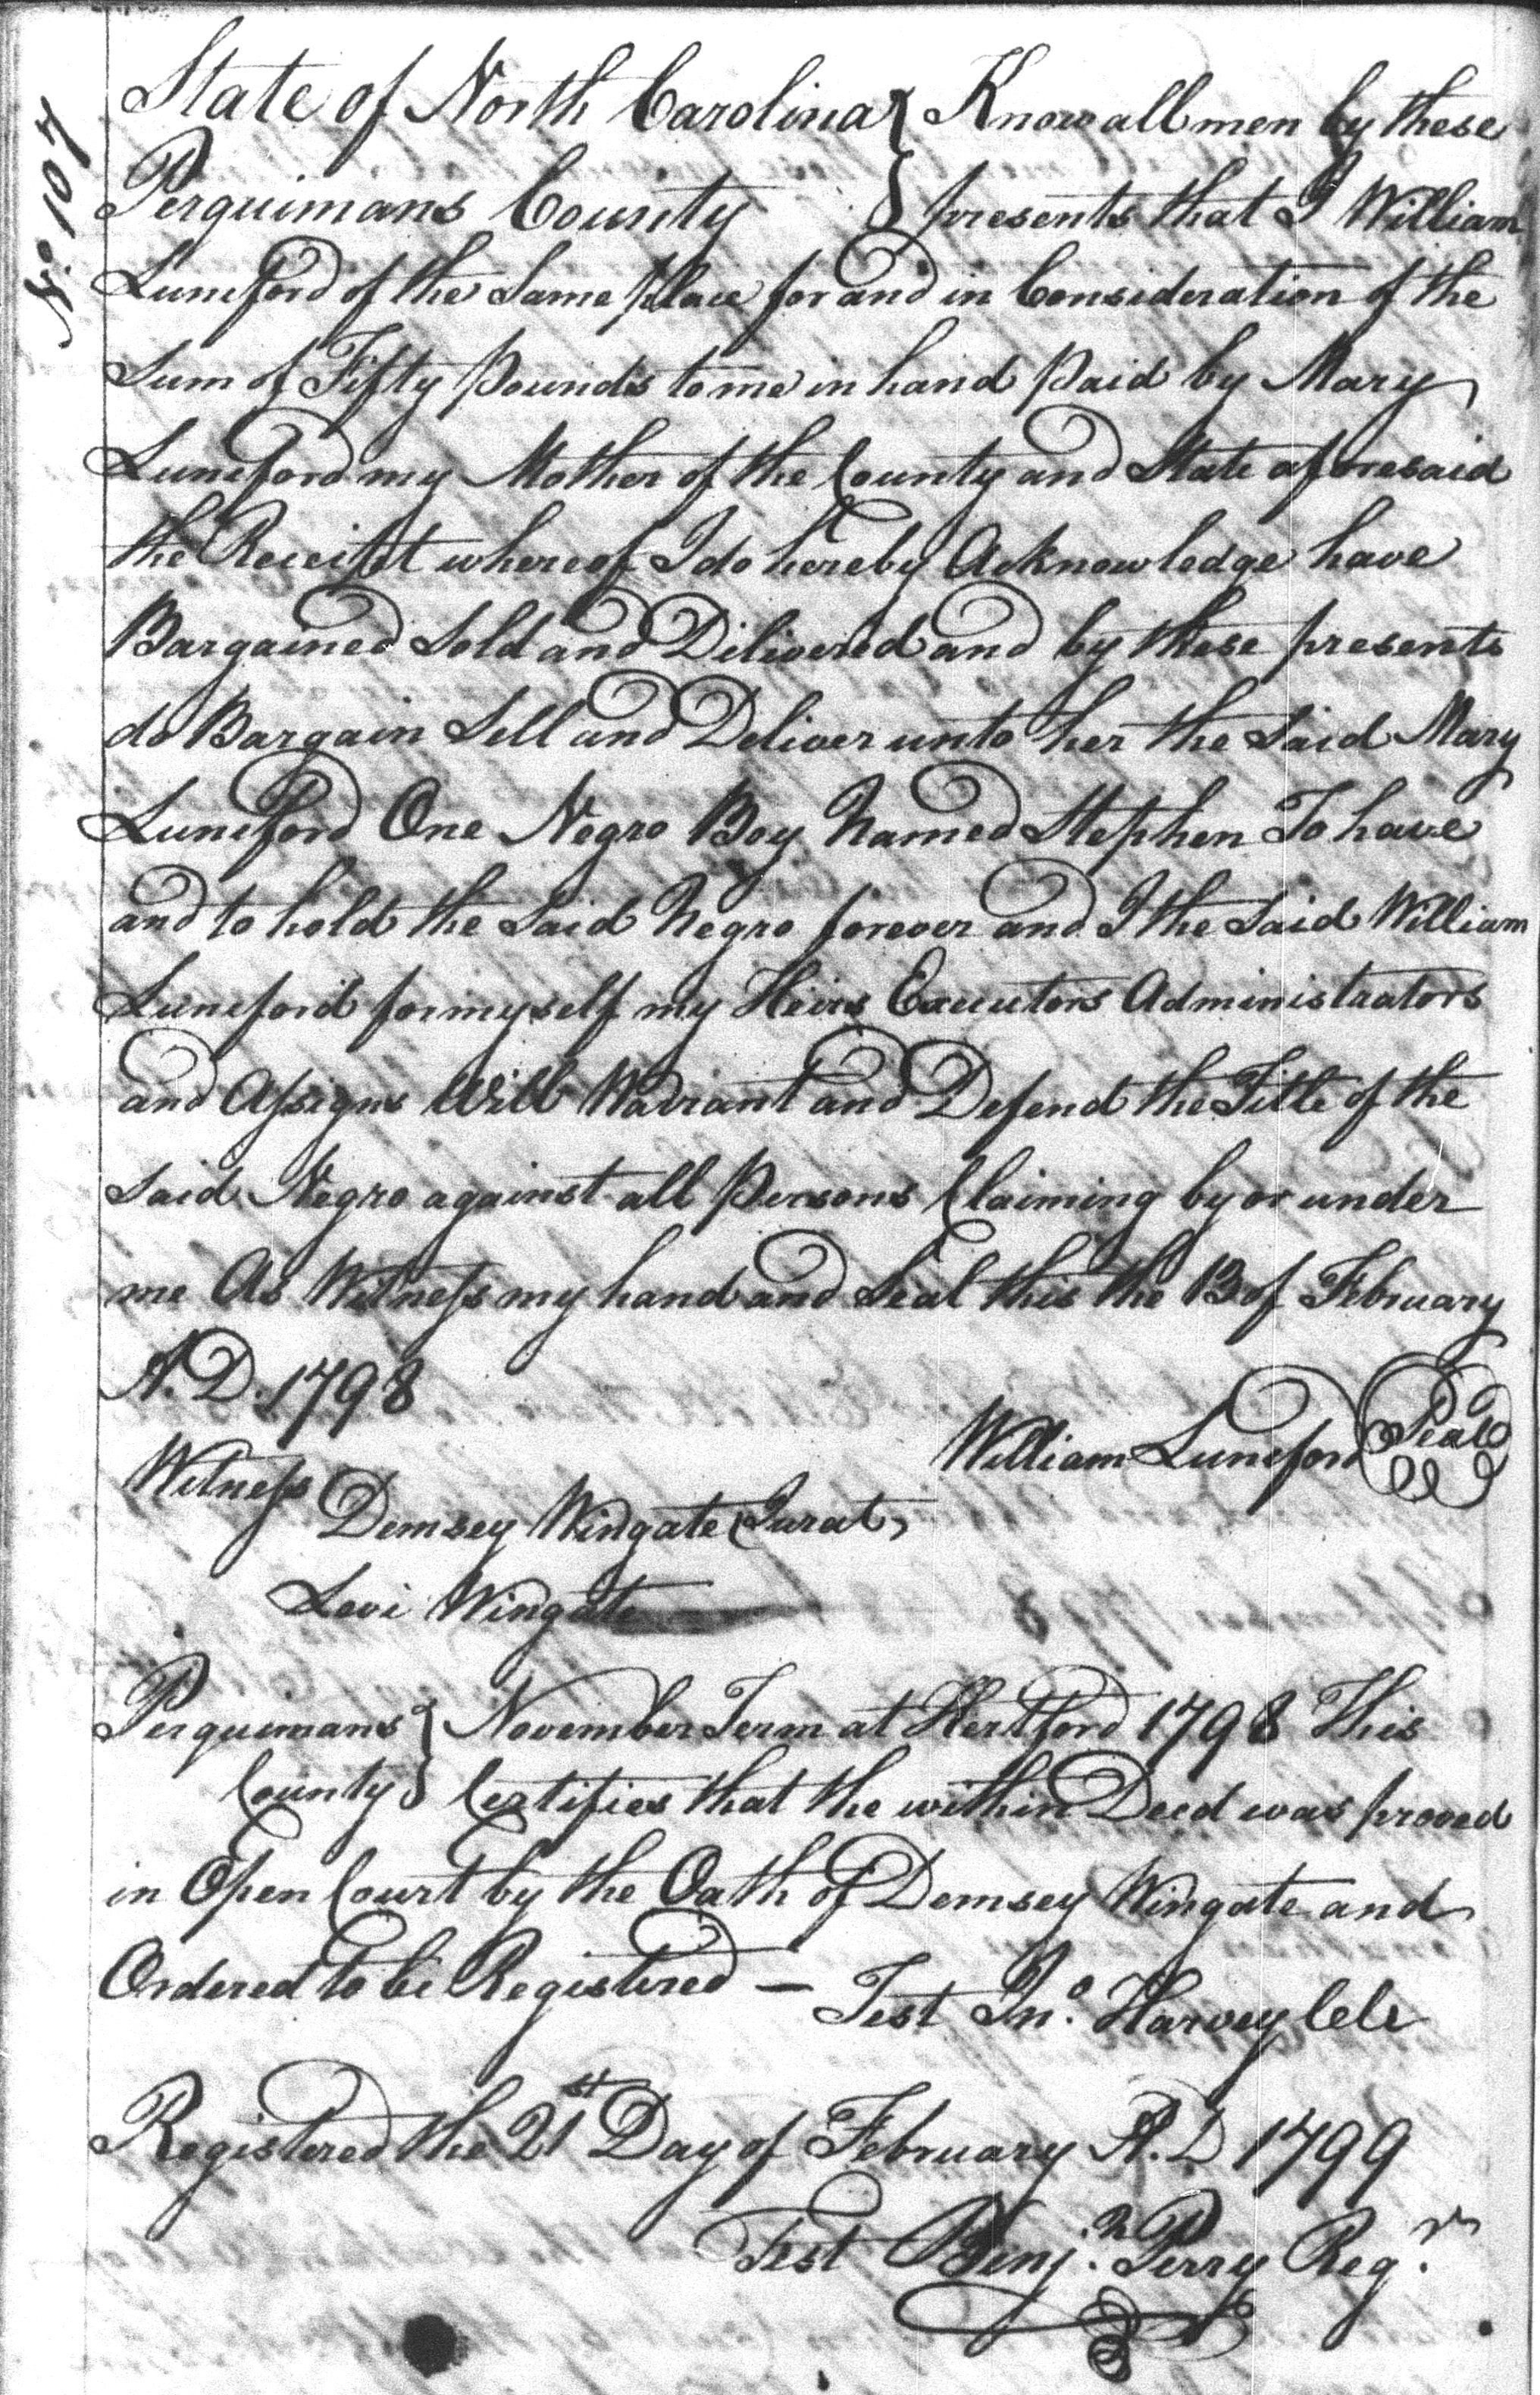 No. 107
State of North Carolina } Know all men by these
Perquimans County } presents that I William
Lunsford of the Same place for and in Consideration of the
Sum of Fifty pounds to me in hand paid by Mary
Lunsford my Mother of the County and State aforesaid
the Receipt whereof I do hereby Acknowledge have
Bargained Sold and Dilivered and by these presents
do Bargain Sell and Deliver unto her the Said Mary
Lunsford One Negro Boy Named Stephen To have
and to hold the Said Negro forever and I the Said William
Lunsford for myself my Heirs Executors Administrators
and Assigns Will Warrant and Defend the Title of the
Said Negro against all Persons Claiming by or under
me As Witness my hand and Seal this the 13 of February
A.D. 1798
William Lunsford Seal
Witness
Demsey Wingate Jurat,
Levi Wingate
Perquimans } November Term at Hertford 1798 This
County } Certifies that the within Deed was proved
in Open Court by the Oath of Demsey Wingate and
Ordered to be Registered — Test Jno. Harvey Clk
Registered the 21st Day of February A.D 1799
Test Benj.n Perry Reg.r